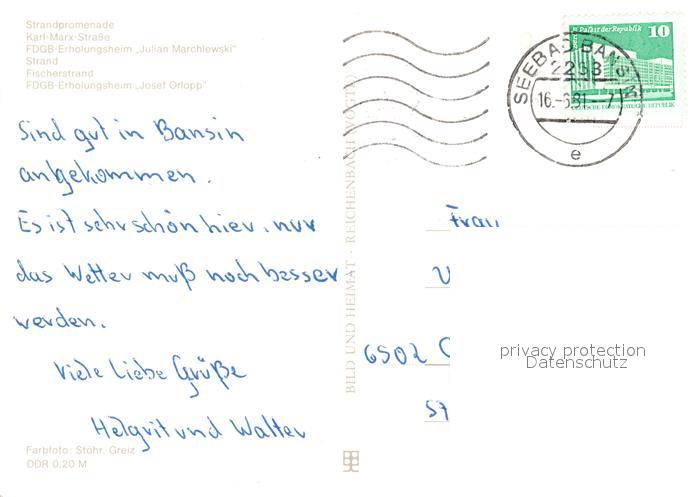 Strandpromenade
Karl-Marx-Straße
FDGB-Erholungsheim „Julian Marchlewski"
Strand
Fischerstrand
FDGB-Erholungsheim „Josef Orlopp"
Sind gut in Bansin
angekommen.
Es ist sehr schön hier, nur
das Wetter muß noch besser
werden.
Viele Liebe Grüße
Helgrit und Walter
Farbfoto: Stöhr, Greiz
DDR 0,20 M
BILD UND HEIMAT · REICHENBACH (VOGTL)
Palast der Republik 10
DEUTSCHE DEMOKRATISCHE REPUBLIK
SEEBAD BANSIN
2253
16.-6.81.-7
e
Frau
V
6502 G
St
privacy protection
Datenschutz